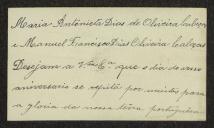 Maria Antonieta Dias de Oliveira Cabral
e Manuel Francisco Dias Oliveira Cabral
Desejam a V. Ex.ª que o dia de seu
aniversario se repita por muitos para
a gloria da nossa terra portuguesa